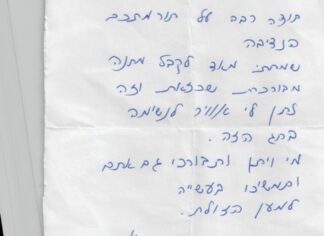 תודה רבה על תורמתכם
הנדיבה
שמחתי מאד לקבל מתנה
מבורכת שכזאת וזה
נתן לי אוויר לנשימה
בחג הזה.
מי יתן ותבורכו גם אתם
ותמשיכו בעשייה
למען הזולת.